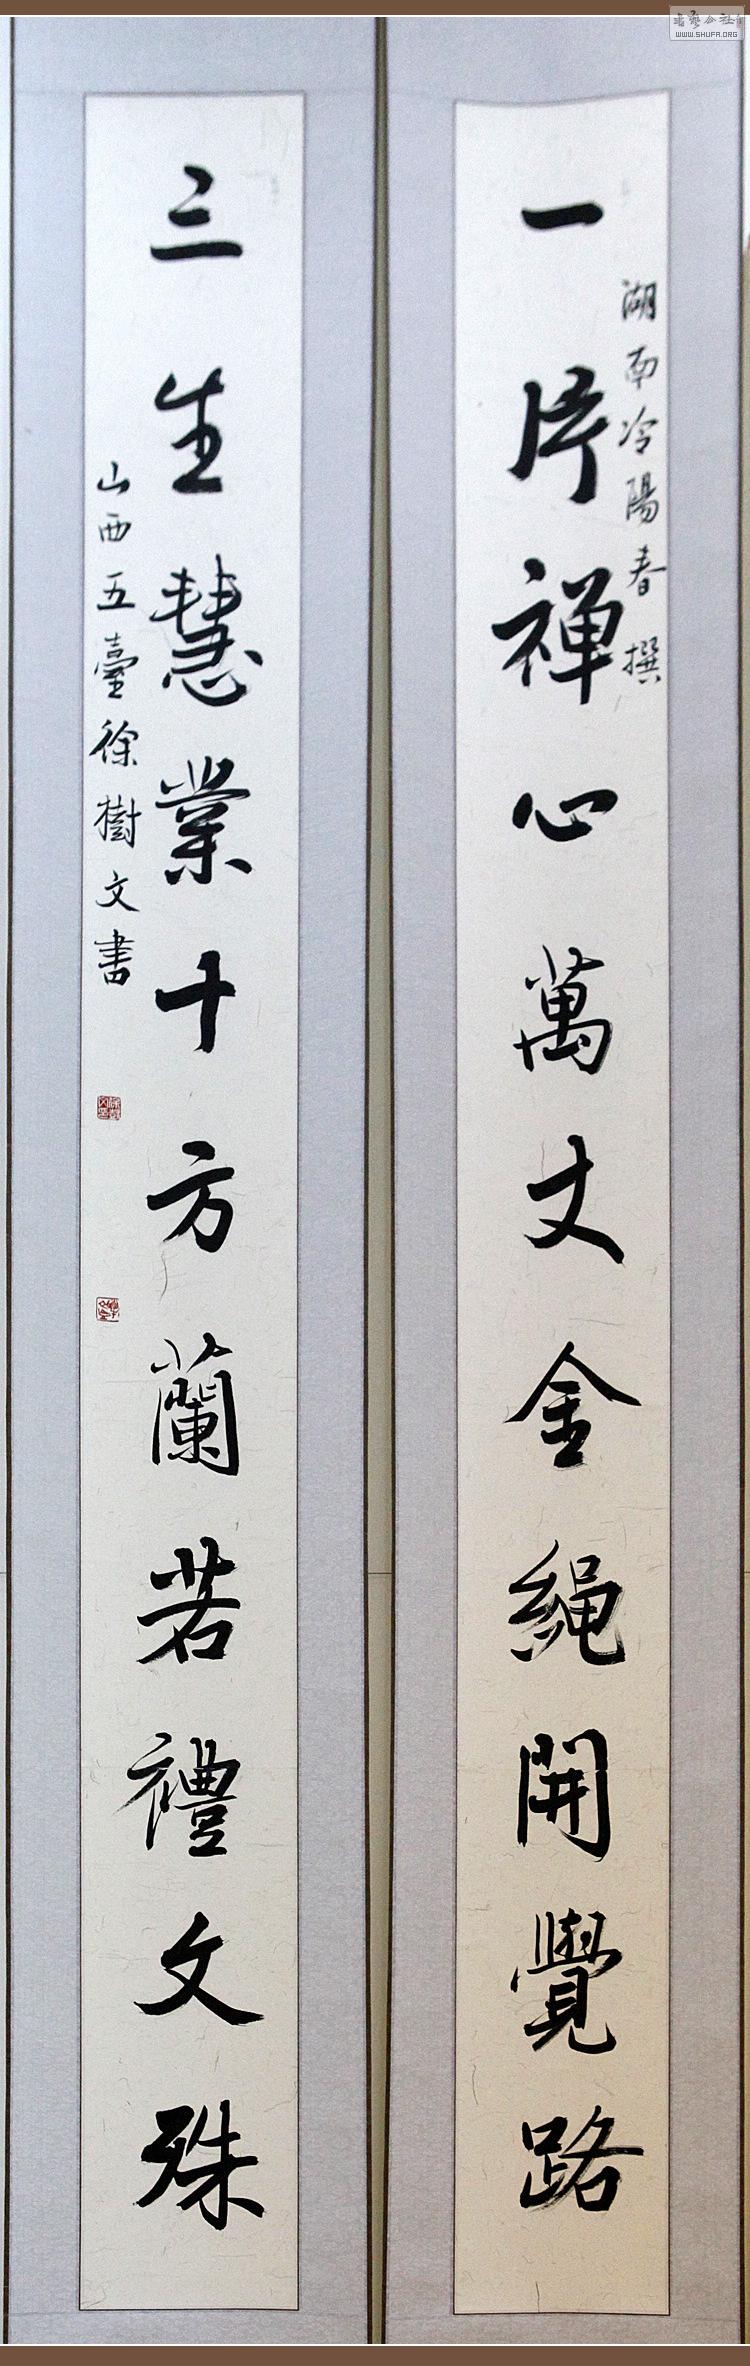 一片禅心萬丈金繩開覺路
湖南冷陽春撰
三生慧業十方蘭若禮文殊
山西五臺徐樹文書
WWW.SHUFA.ORG